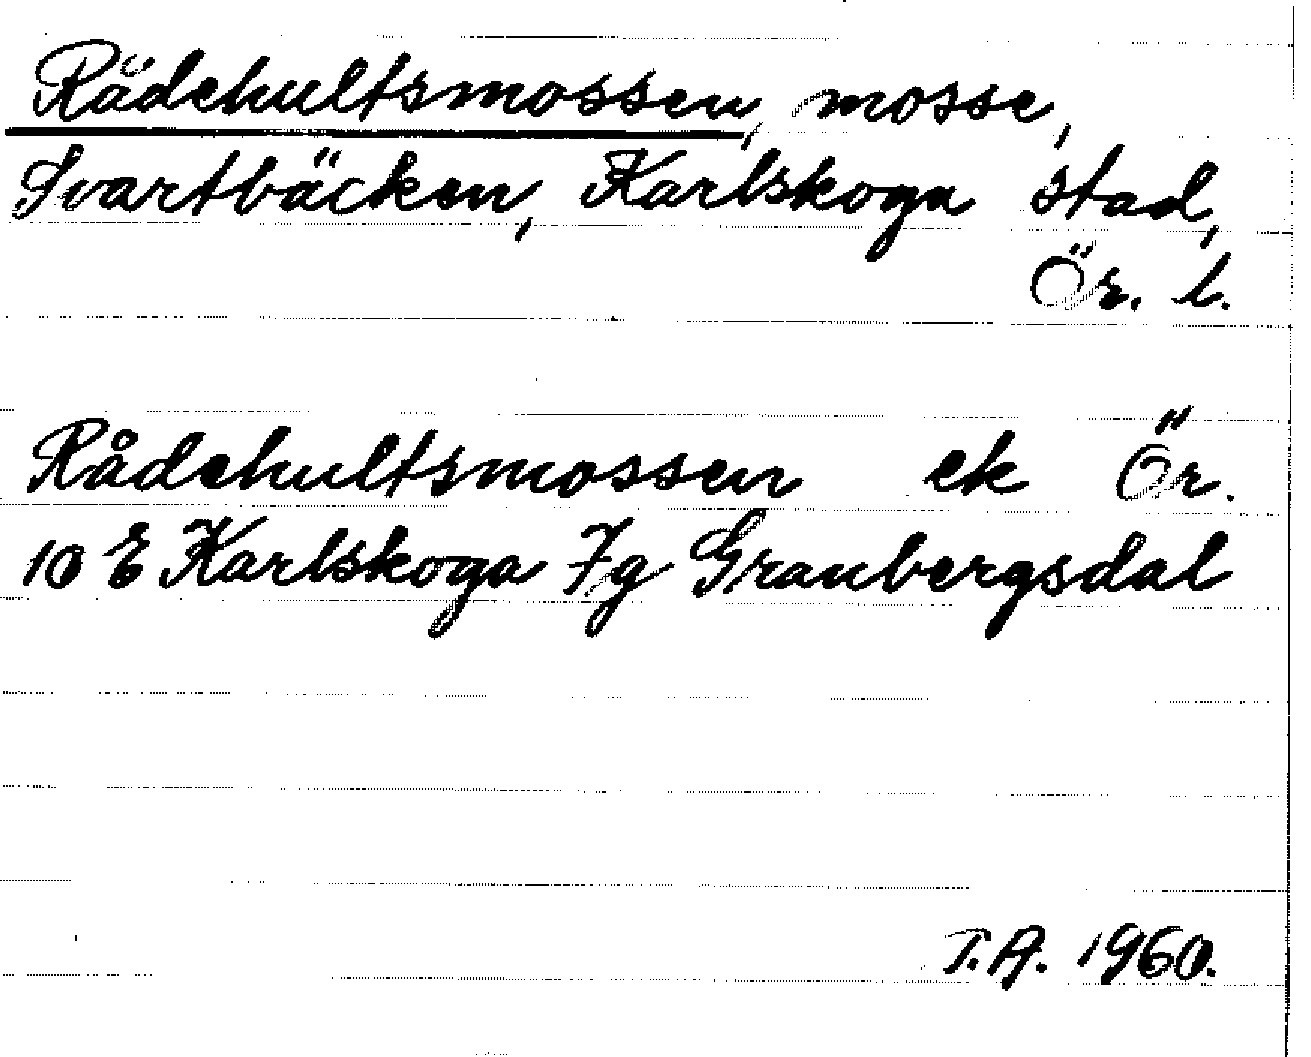 Rådehultsmossen, mosse,
Svartbäcken, Karlskoga stad,
Ör. l.
Rådehultsmossen ek Ör.
10 E Karlskoga 7g Granbergsdal
T.A. 1960.